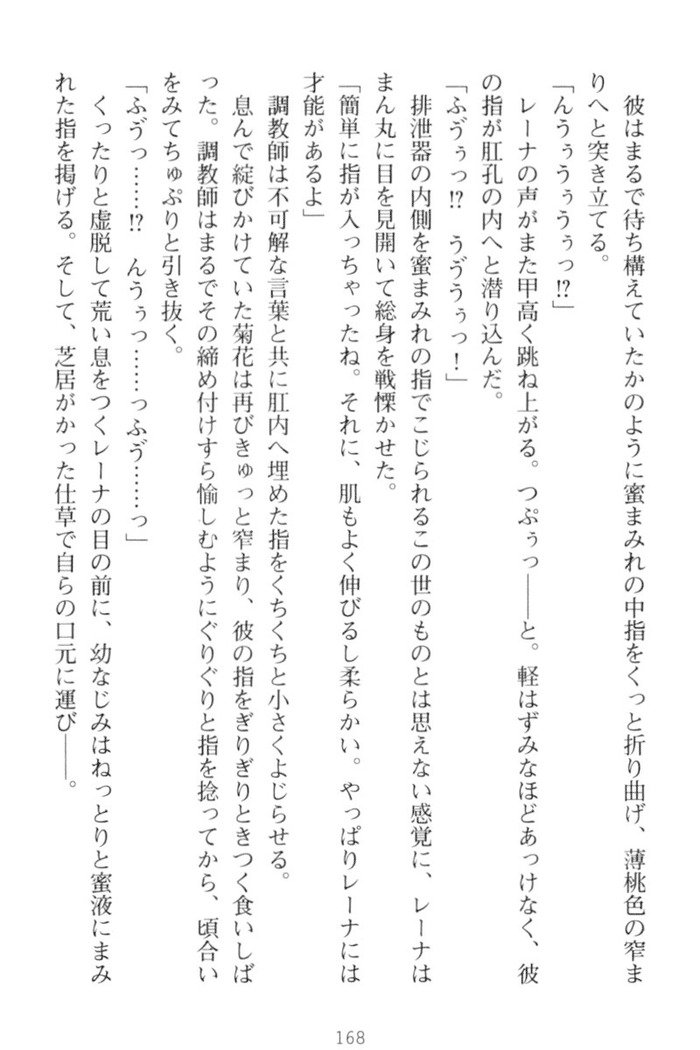 彼はまるで待ち構えていたかのように蜜まみれの中指をくっと折り曲げ、薄桃色の窄ま
りへと突き立てる。
「んうぅうぅうぅっ!?」
レーナの声がまた甲高く跳ね上がる。つぷぅっ――と。軽はずみなほどあっけなく、彼
の指が肛孔の内へと潜り込んだ。
「ふゔぅっ!?　うゔうぅっ！」
排泄器の内側を蜜まみれの指でこじられるこの世のものとは思えない感覚に、レーナは
まん丸に目を見開いて総身を戦慄かせた。
「簡単に指が入っちゃったね。それに、肌もよく伸びるし柔らかい。やっぱりレーナには
才能があるよ」
調教師は不可解な言葉と共に肛内へ埋めた指をくちくちと小さくよじらせる。
息んで綻びかけていた菊花は再びきゅっと窄まり、彼の指をぎりぎりときつく食いしば
った。調教師はまるでその締め付けすら愉しむようにぐりぐりと指を捻ってから、頃合い
をみてちゅぷりと引き抜く。
「ふゔっ……!?　んうぅっ……っふゔ……っ」
くったりと虚脱して荒い息をつくレーナの目の前に、幼なじみはねっとりと蜜液にまみ
れた指を掲げる。そして、芝居がかった仕草で自らの口元に運び――。
168